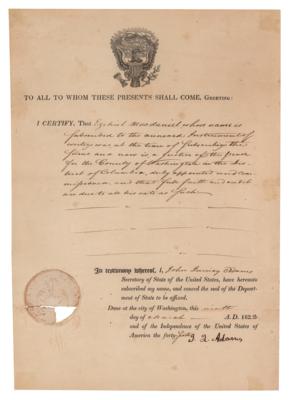 TO ALL TO WHOM THESE PRESENTS SHALL COME, GREETING:
I CERTIFY, That Ezekiel Macdaniel whose name is
subscribed to the annexed Instrument of
writing was at the time of subscribing the
same and now is a justice of the peace
for the County of Washington in the Dis
trict of Columbia, duly appointed and com
missioned, and that full faith and credit
are due to all his acts as such.
In testimony whereof, I, John Quincy Adams
Secretary of State of the United States, have hereunto
subscribed my name, and caused the seal of the Depart-
ment of State to be affixed.
Done at the city of Washington, this
day of March A. D. 182
and of the Independence of the United States of
America the forty
J. Q. Adams